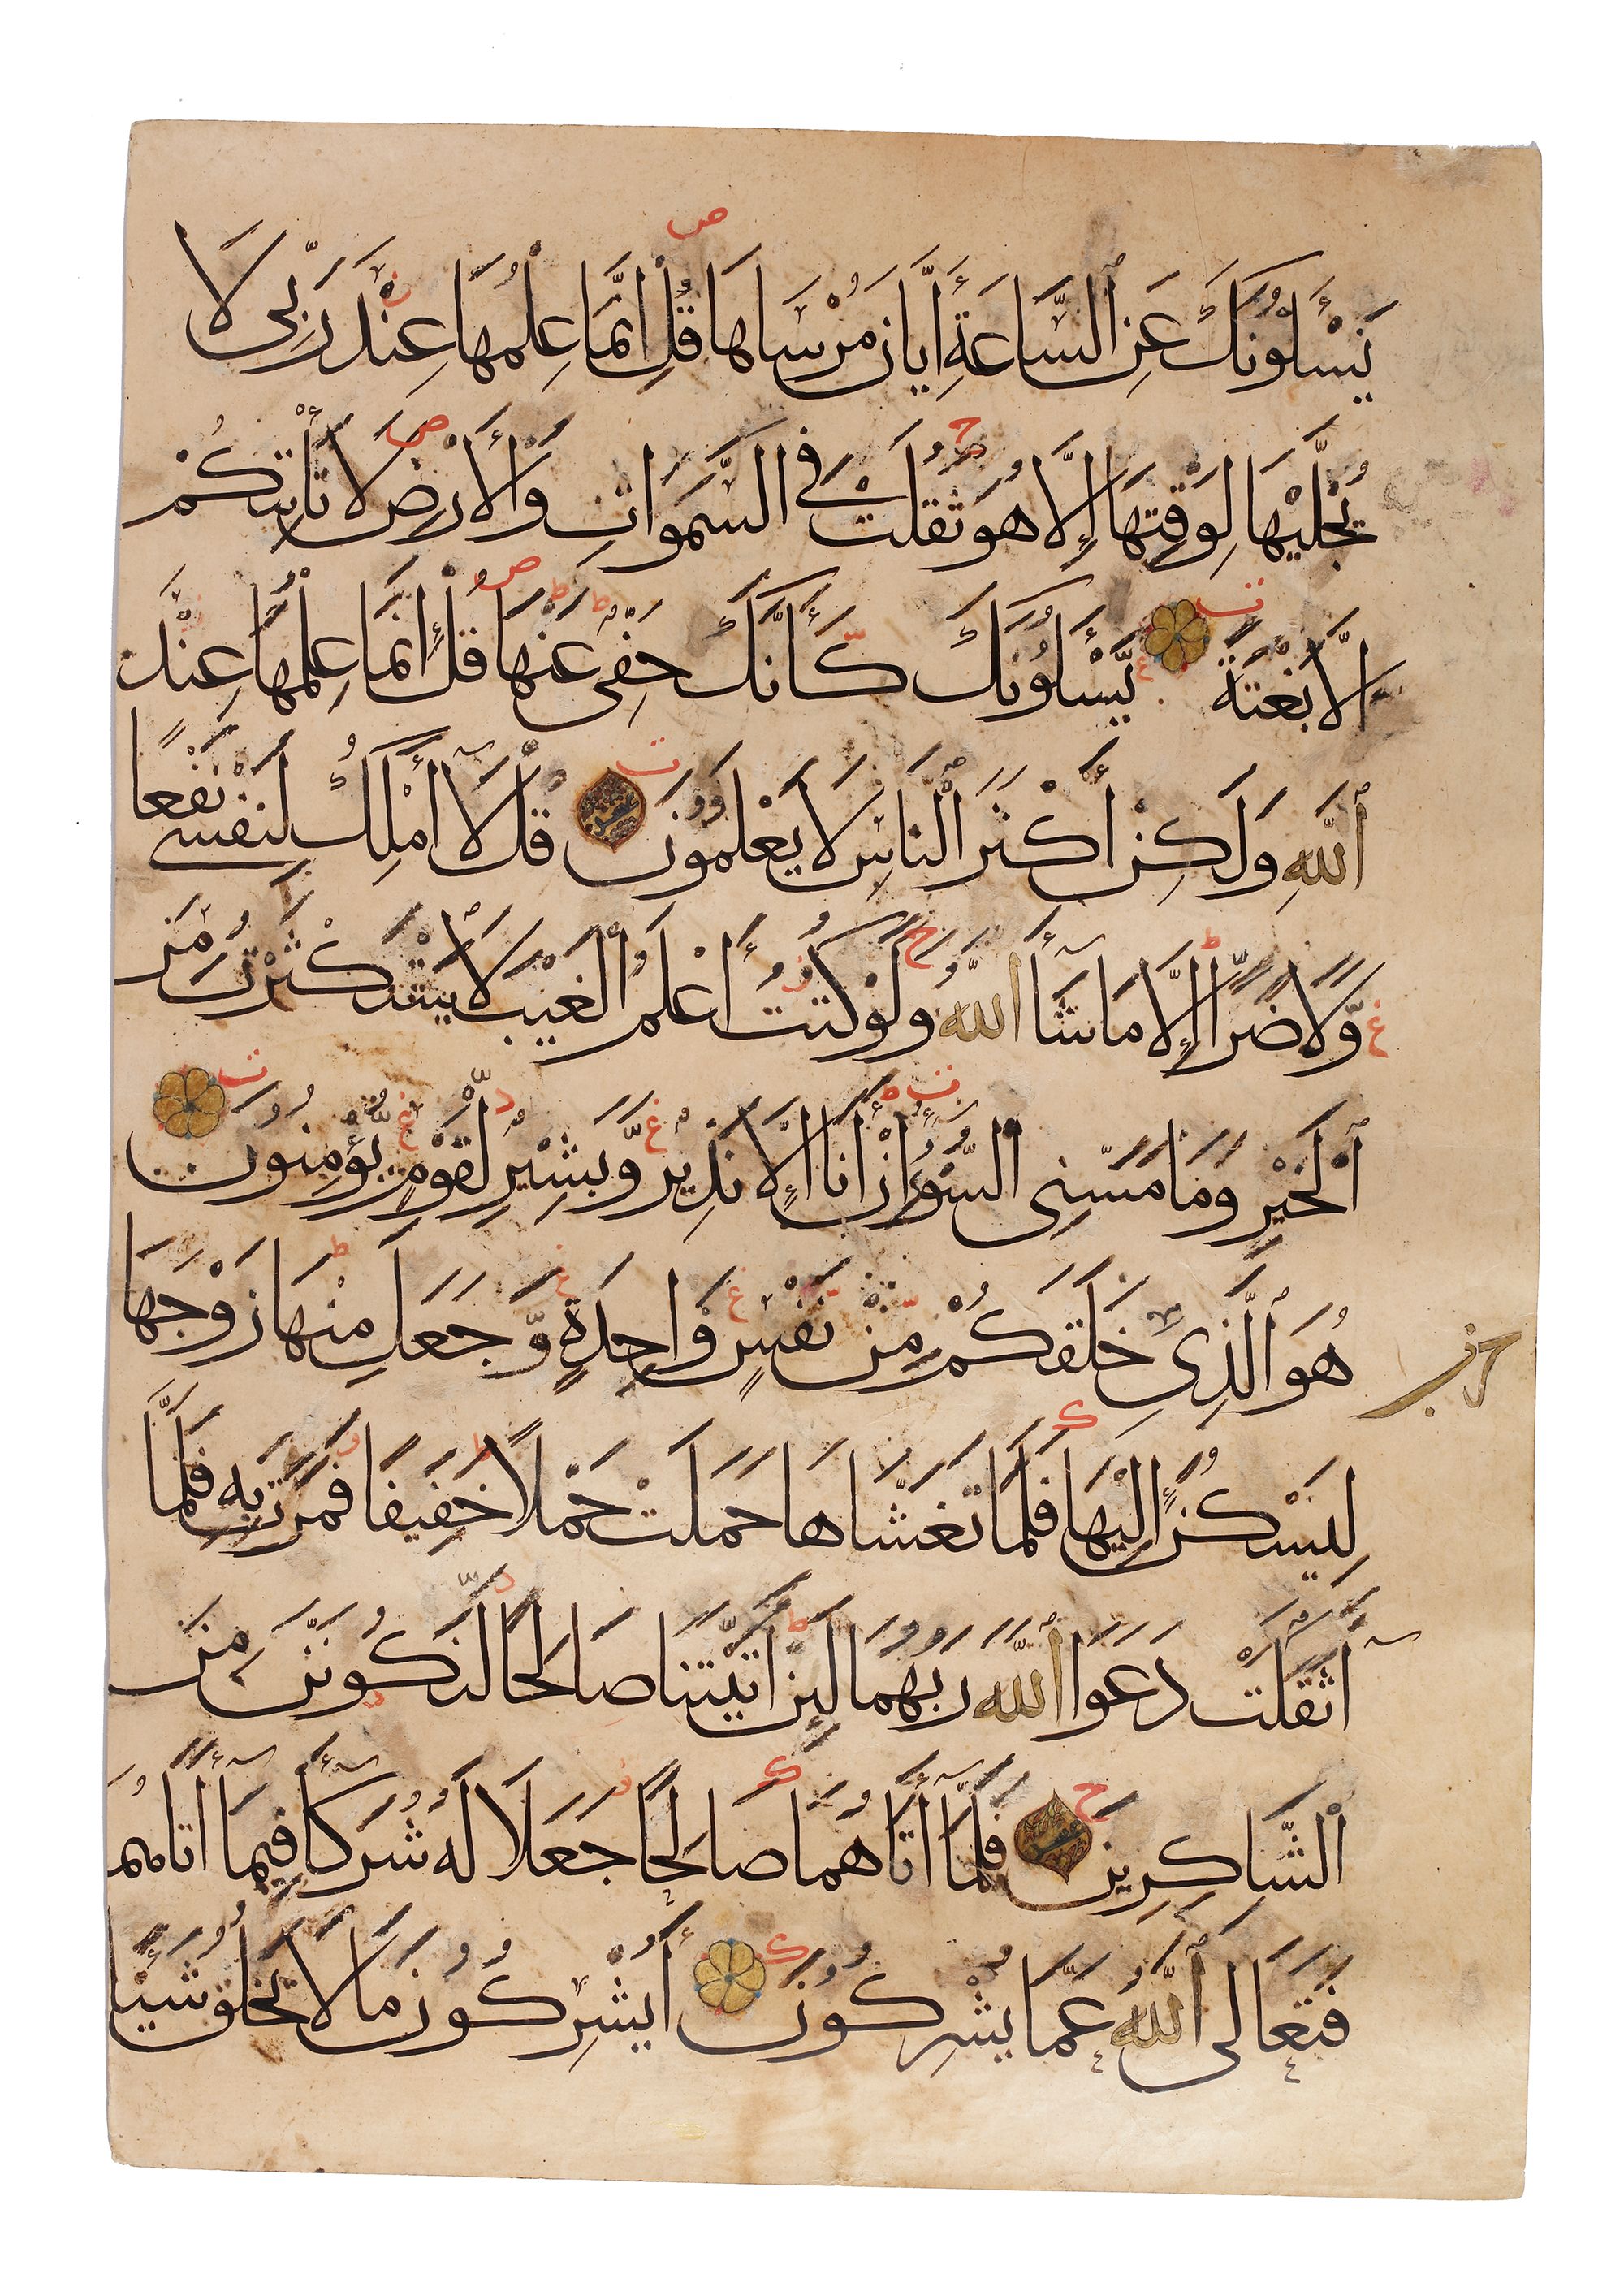 يَسْـَٔلُونَكَ عَنِ السَّاعَةِ اَيَّانَ مُرْسَاهَا قُلْ اِنَّمَا عِلْمُهَا عِنْدَ رَبِّى لَا
يُجَلِّيْهَا لِوَقْتِهَا إِلَّا هُوَ ثَقُلَتْ فِى السَّمَوَاتِ وَالْأَرْضِ لَا تَأْتِيكُمْ
اِلَّا بَغْتَةً يَّسْـَٔلُونَكَ كَأَنَّكَ حَفِىٌّ عَنْهَا قُلْ إِنَّمَا عِلْمُهَا عِنْدَ
ٱللَّهِ وَلَكِنَّ أَكْثَرَ ٱلنَّاسِ لَا يَعْلَمُونَ قُلْ لَآ أَمْلِكُ لِنَفْسِى نَفْعًا
وَّلَا ضَرًّا إِلَّا مَا شَآءَ ٱللَّهُ وَلَوْ كُنْتُ أَعْلَمُ ٱلْغَيْبَ لَاسْتَكْثَرْتُ مِنَ
ٱلْخَيْرِ وَمَا مَسَّنِىَ ٱلسُّوٓءُ إِنْ اَنَا إِلَّا نَذِيرٌ وَّبَشِيْرٌ لِّقَوْمٍ يُّؤْمِنُونَ
هُوَ ٱلَّذِى خَلَقَكُمْ مِّنْ نَّفْسٍ وَّاحِدَةٍ وَّجَعَلَ مِنْهَا زَوْجَهَا
حزب
لِيَسْكُنَ إِلَيْهَا فَلَمَّا تَغَشَّاهَا حَمَلَتْ حَمْلًا خَفِيفًا فَمَرَّتْ بِهِ فَلَمَّآ
أَثْقَلَتْ دَعَوَا ٱللَّهَ رَبَّهُمَا لَئِنْ اٰتَيْتَنَا صَالِحًا لَّنَكُونَنَّ مِنَ
ٱلشَّاكِرِينَ فَلَمَّآ أَتَاهُمَا صَالِحًا جَعَلَا لَهُ شُرَكَآءَ فِيمَآ أَتَاهُمَا
فَتَعَالَى ٱللَّهُ عَمَّا يُشْرِكُونَ أَيُشْرِكُونَ مَا لَا يَخْلُقُ شَيْـًٔا